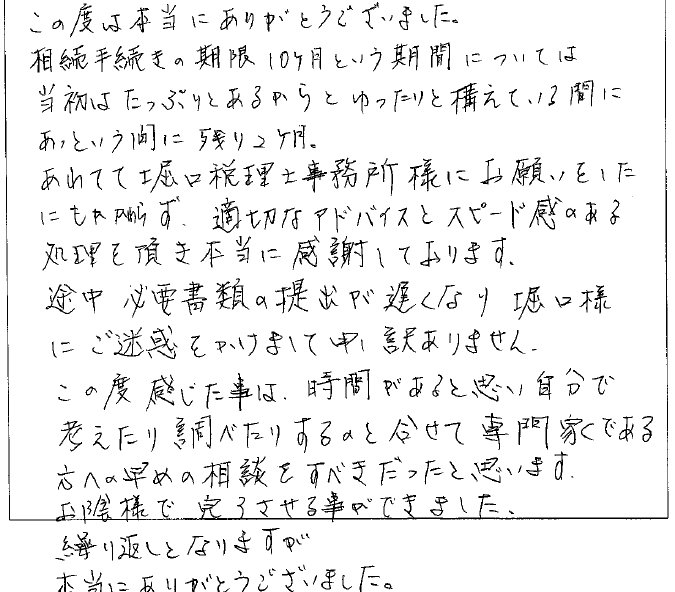 この度は本当にありがとうございました。
相続手続きの期限10ヶ月という期間については
当初はたっぷりとあるからとゆったりと構えている間に
あっという間に残り2ヶ月。
あわてて堀口税理士事務所様にお願いをした
にもかかわらず、適切なアドバイスとスピード感のある
処理を頂き本当に感謝しております。
途中必要書類の提出が遅くなり堀口様
にご迷惑をかけまして申し訳ありません。
この度感じた事は、時間があると思い自分で
考えたり調べたりするのと合せて専門家である
方への早めの相談をすべきだったと思います。
お陰様で完了させる事ができました。
繰り返しとなりますが
本当にありがとうございました。